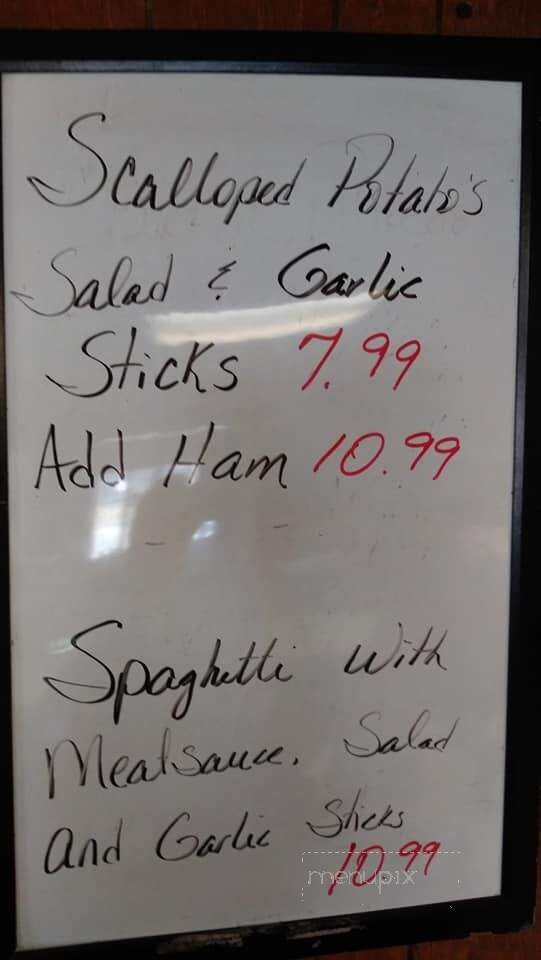 Scalloped Potato's
Salad & Garlic
Sticks 7.99
Add Ham 10.99
Spaghetti With
Meatsauce, Salad
And Garlic Sticks
10.99
menupix